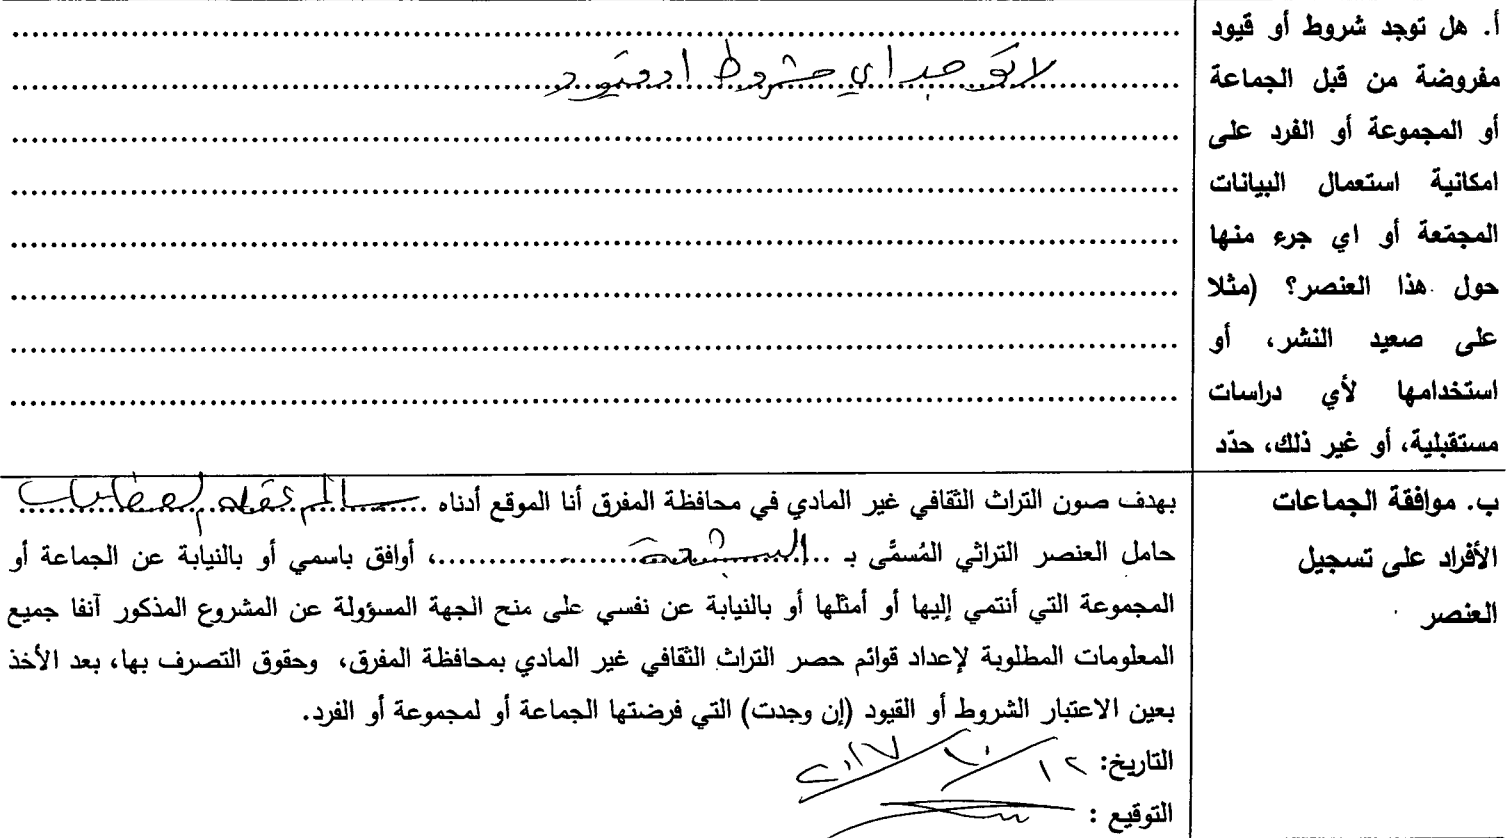 أ. هل توجد شروط أو قيود
مفروضة من قبل الجماعة
أو المجموعة أو الفرد على
امكانية استعمال البيانات
المجمّعة أو اي جرء منها
حول هذا العنصر؟ (مثلا
على صعيد النشر، أو
استخدامها لأي دراسات
مستقبلية، أو غير ذلك، حدّد
لا توجد اي شروط او قيود
ب. موافقة الجماعات
الأفراد على تسجيل
العنصر
بهدف صون التراث الثقافي غير المادي في محافظة المفرق أنا الموقع أدناه سالم عقله
حامل العنصر التراثي المُسمَّى بـ البشعة، أوافق باسمي أو بالنيابة عن الجماعة أو
المجموعة التي أنتمي إليها أو أمثلها أو بالنيابة عن نفسي على منح الجهة المسؤولة عن المشروع المذكور آنفا جميع
المعلومات المطلوبة لإعداد قوائم حصر التراث الثقافي غير المادي بمحافظة المفرق، وحقوق التصرف بها، بعد الأخذ
بعين الاعتبار الشروط أو القيود (إن وجدت) التي فرضتها الجماعة أو لمجموعة أو الفرد.
التاريخ: ١٢/١٠/٢٠١٧
التوقيع :